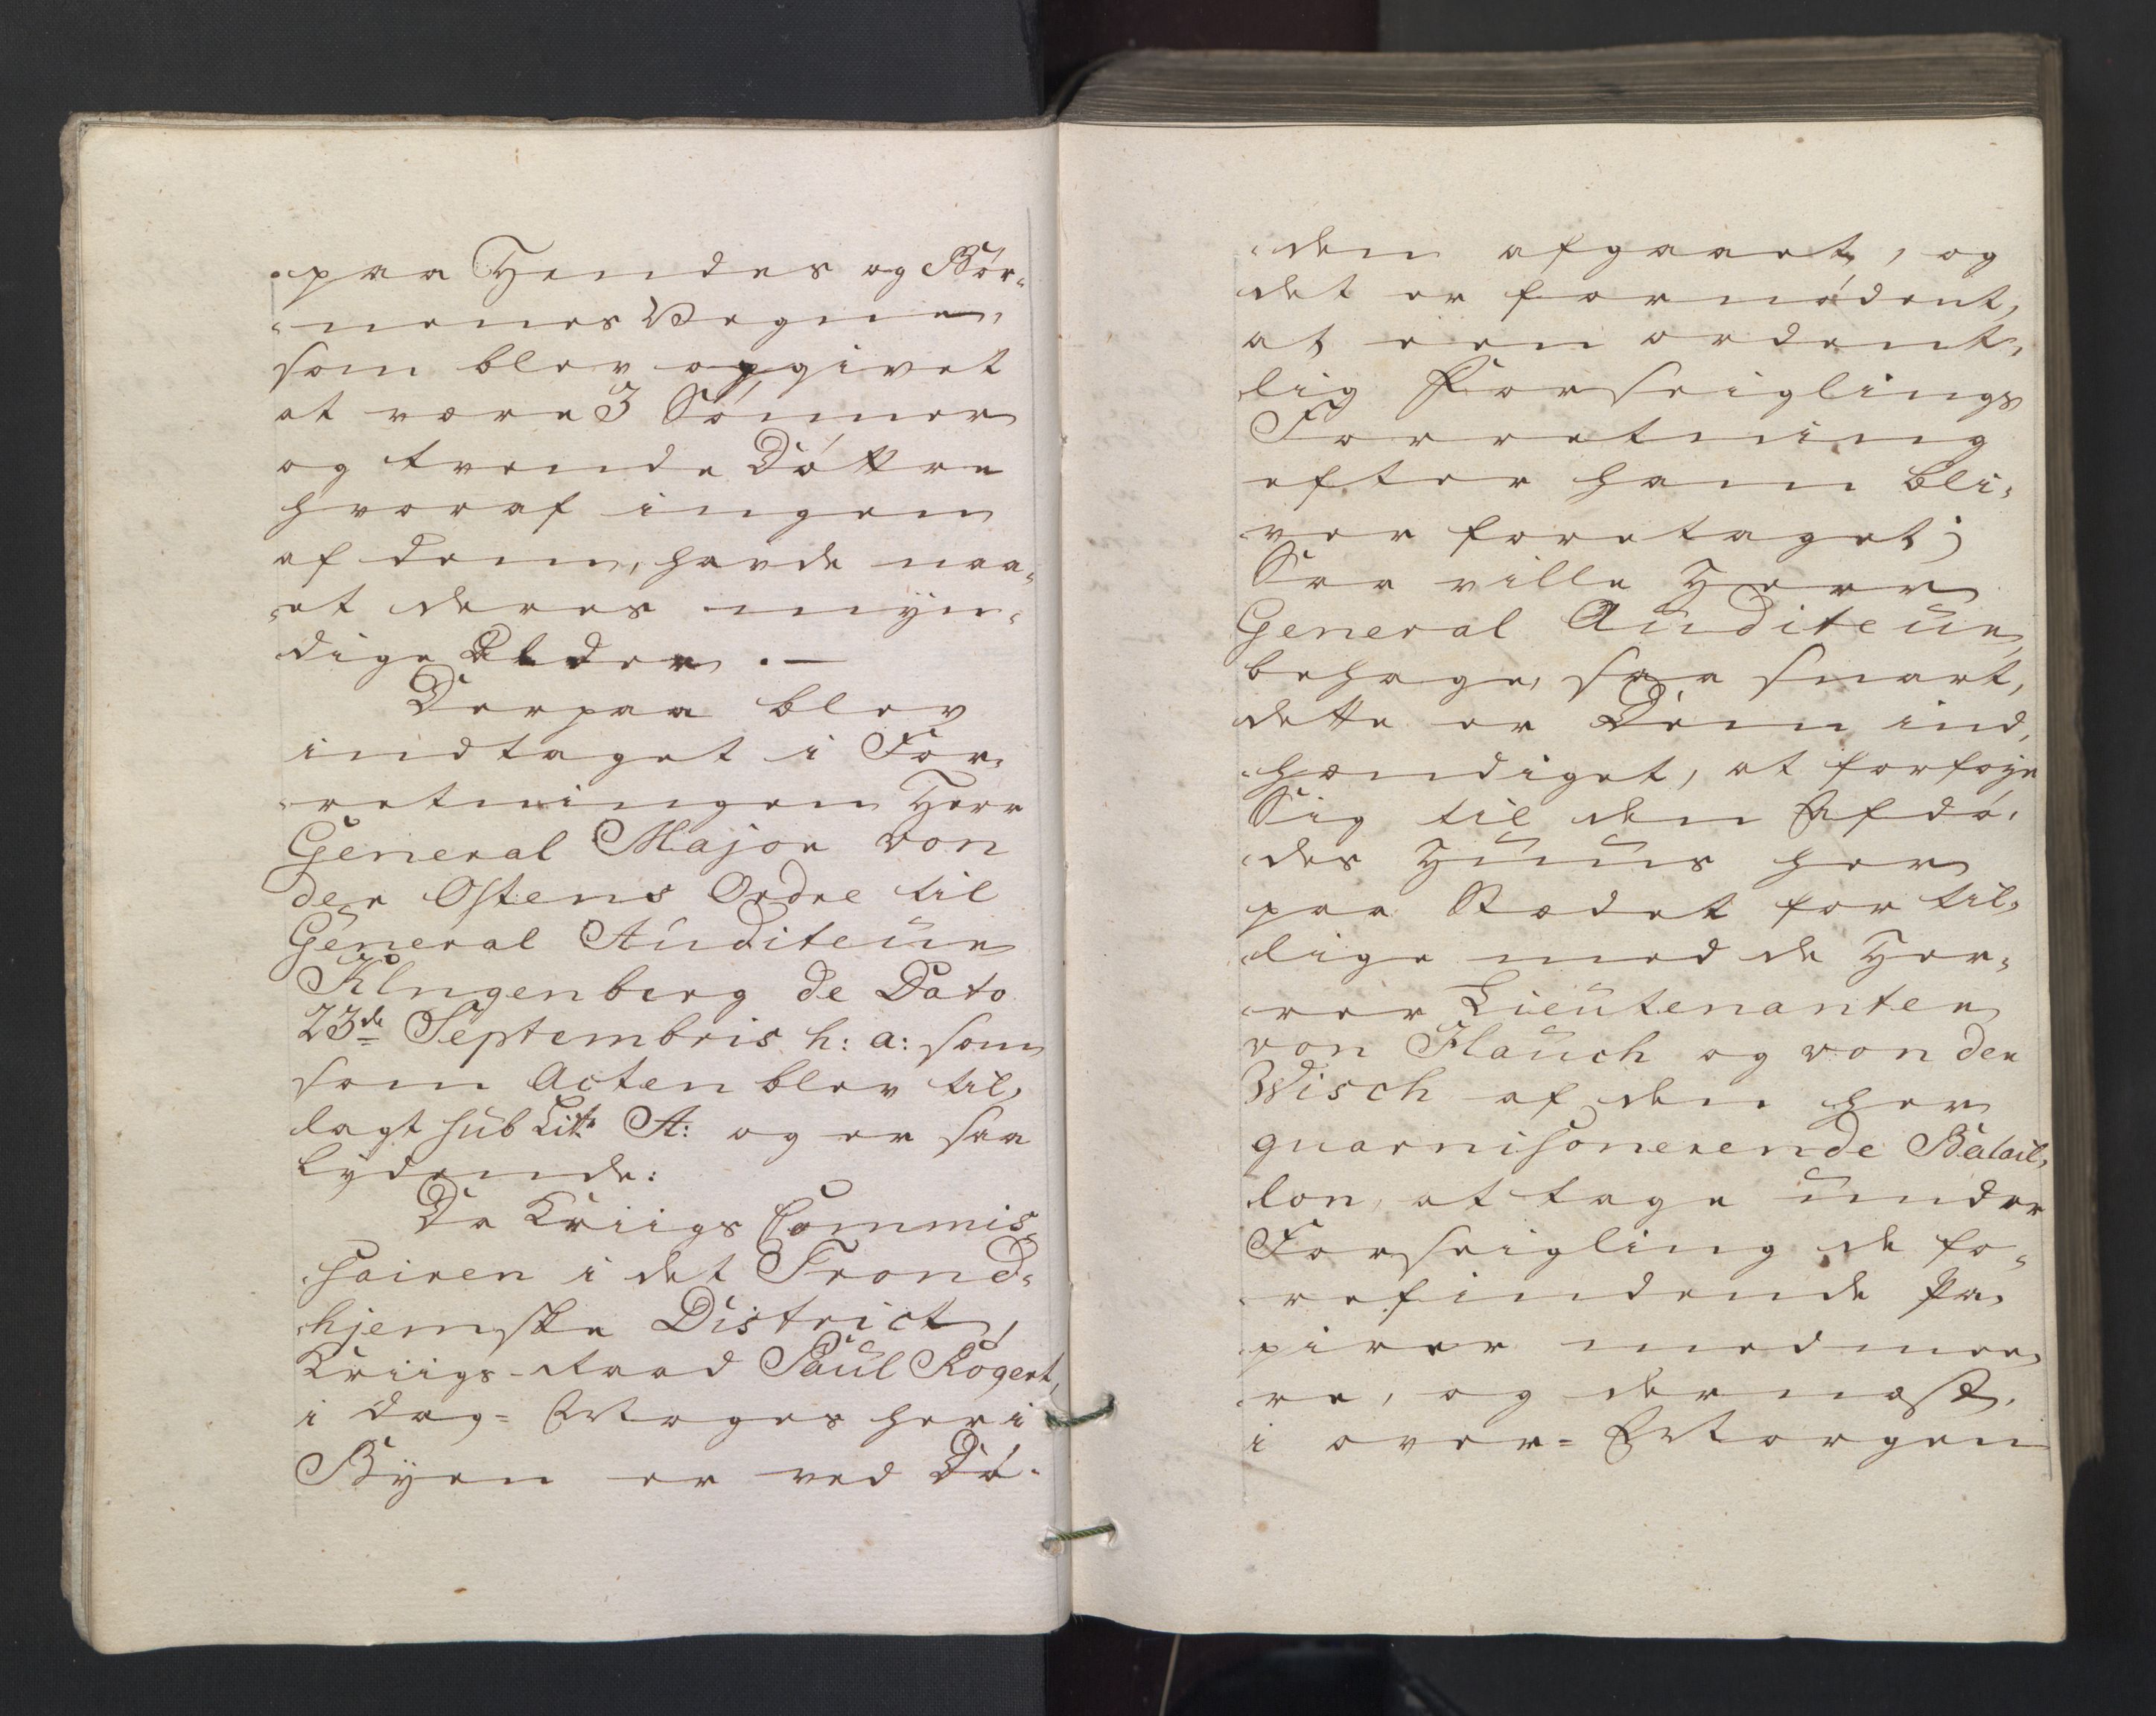 paa Hendes og Bør-
nenes Vegne,
som blev opgivet
at være 3 Sønner
og tvende Døttre
hvoraf ingen
af dem, havde naa-
et deres myn-
dige Alder. —
Derpaa blev
indtaget i For-
retningen Herr
General Major von
der Ostens Ordre til
General Auditeur
Klingenberg de Dato
23de Septembris h: a: som
som Acten blev til-
lagt sub Litr A: og er saa
lydende:
Da Kriigs Commis-
sairen i det Trond-
hjemske District,
Kriigs-Raad Paul Rogert,
i Dag= Morges her i
Byen er ved Dø-
den afgaaet, og
det er fornødent,
at een ordent-
lig Forseiglings
Forretning
efter ham bli-
ver foretaget;
Saa ville Herr
General Auditeur
behage, saa snart,
dette er Dem ind-
hændiget, at forføye
Sig til den Afdø-
des Huus her
paa Stædet for til-
lige med de Her-
rer Lieutenanter
von Hauch og von der
Wisch af den her
guarnisonerende Batail-
lon, at tage under
Forseigling de fo-
refindende Pa-
pirer med mee-
re, og der næst,
i over= Morgen